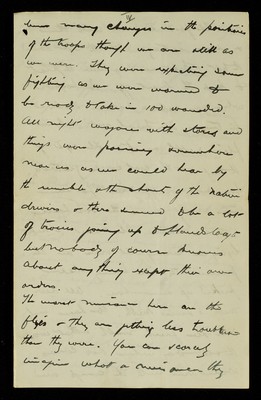 been many changes in the positions
of the troops though we are still as
we were. They were expecting some
fighting as we were warned to
be ready to take in 100 wounded.
All night wagons with stores and
things were passing somewhere
near us as we could hear by
the rumble & the shouts of the native
drivers & there seemed to be a lot
of troops going up to
but nobody of course knows
about anything except their own
orders.
The worst nuisance here are the
flies & they are getting less troublesome
than they were. You can scarcely
imagine what a nuisance they